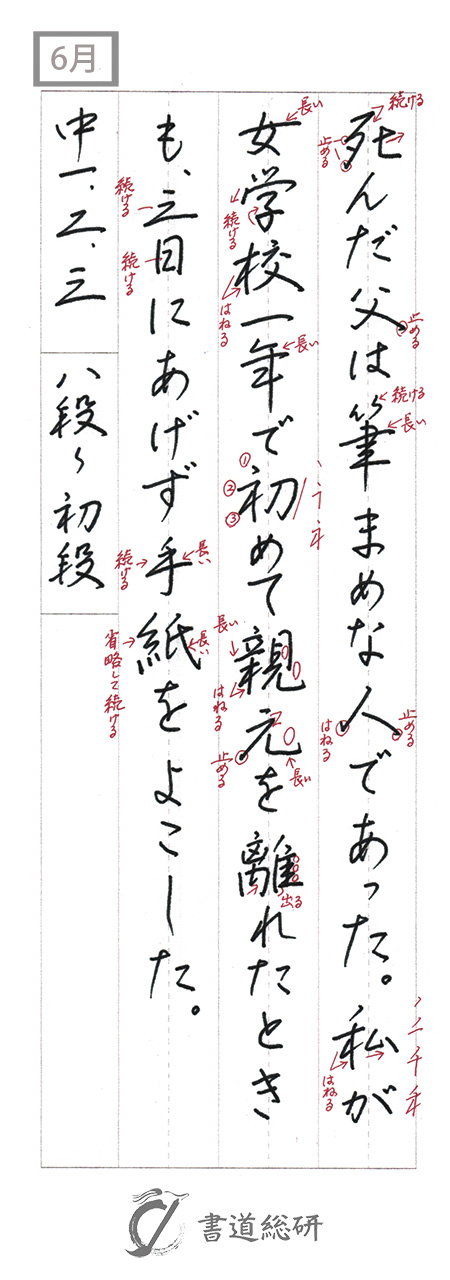 6月
死んだ父は筆まめな人であった。私が
女学校一年で初めて親元を離れたとき
も、三日にあげず手紙をよこした。
中一、二、三
八段～初段
続ける
止める
止める
続ける
長い
止める
はねる
はねる
長い
続ける
はねる
長い
①
②
③
長い
はねる
止める
長い
出る
続ける
続ける
長い
続ける
長い
省略して続ける
書道総研